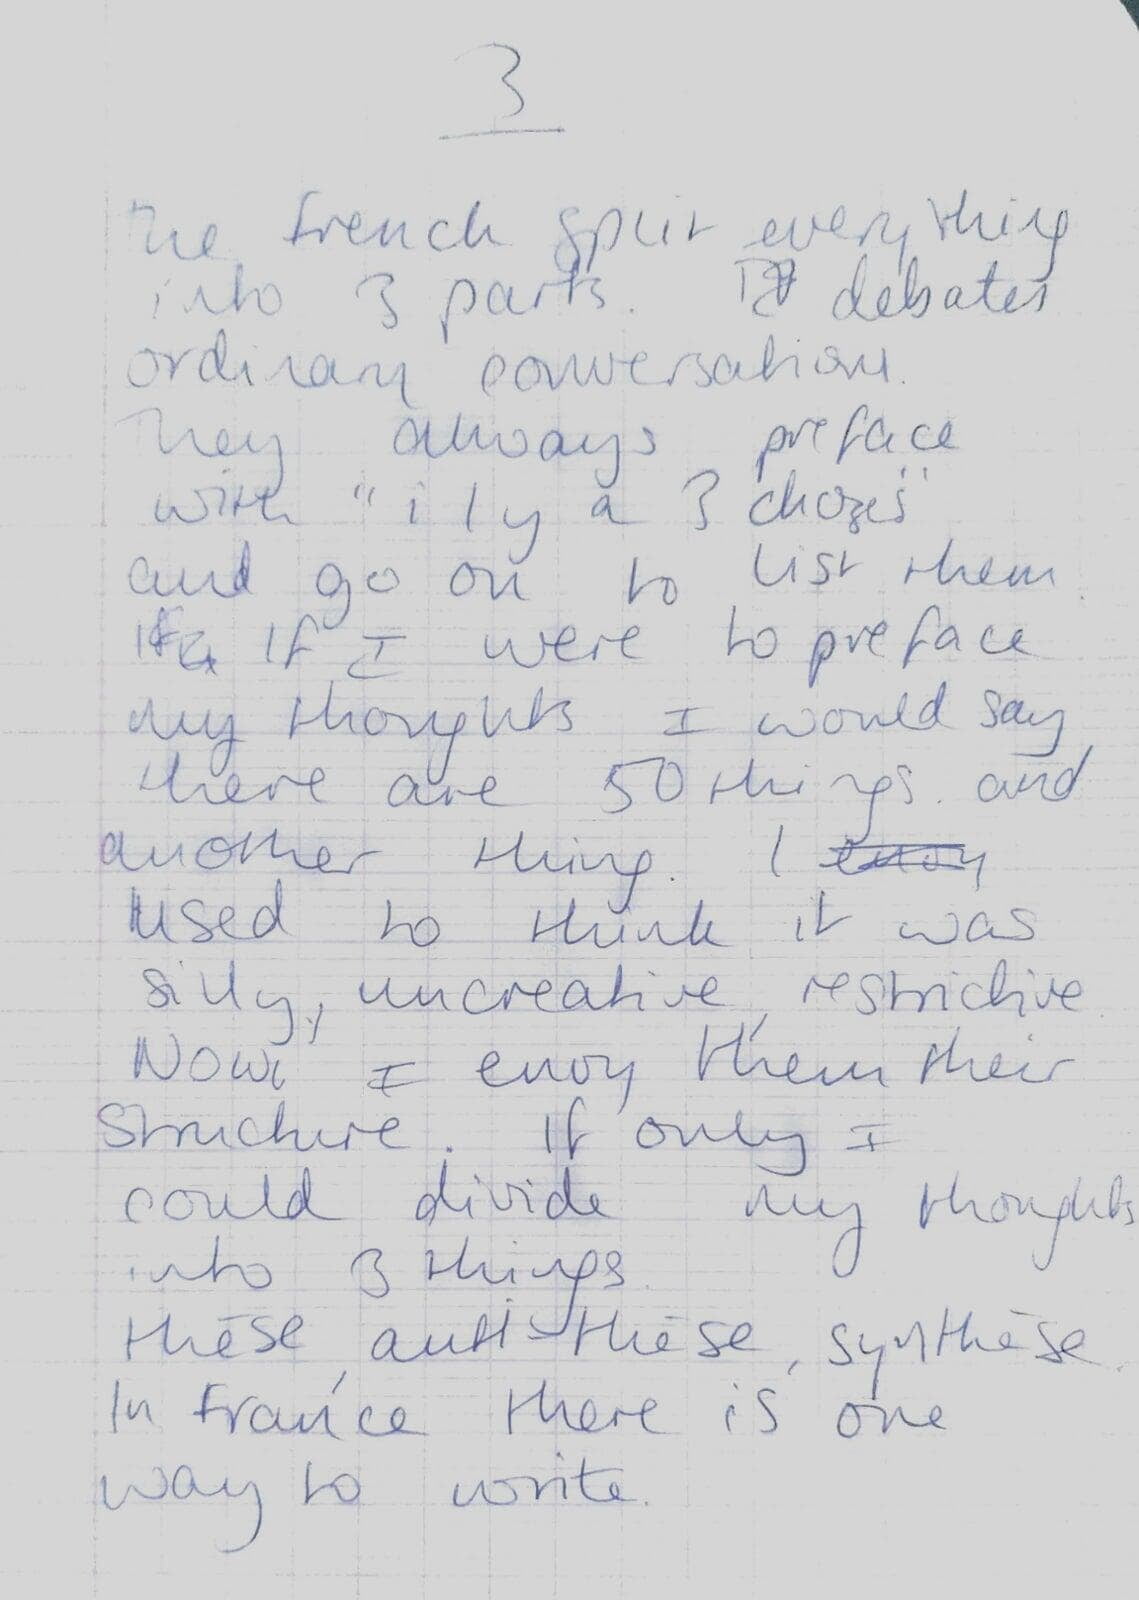 3
The french split everything
into 3 parts. debates
ordinary conversation.
They always preface
with "il y a 3 choses"
and go on to list them.
If I were to preface
my thoughts I would say,
there are 50 things. and
another thing. I envoy
used to think it was
silly, uncreative, restrictive
Now, I envoy them their
structure. If only I
could divide my thoughts
into 3 things.
thèse, anti-thèse, synthèse.
In france there is one
way to write.